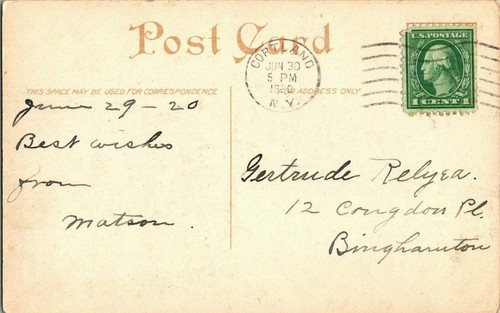 Post Card
CORTLAND
JUN 30
5 PM
N.Y.
U.S. POSTAGE
1 CENT 1
THIS SPACE MAY BE USED FOR CORRESPONDENCE
FOR ADDRESS ONLY
June 29-20
Best wishes
from
Matson.
Gertrude Relyea.
12 Congdon Pl.
Binghamton